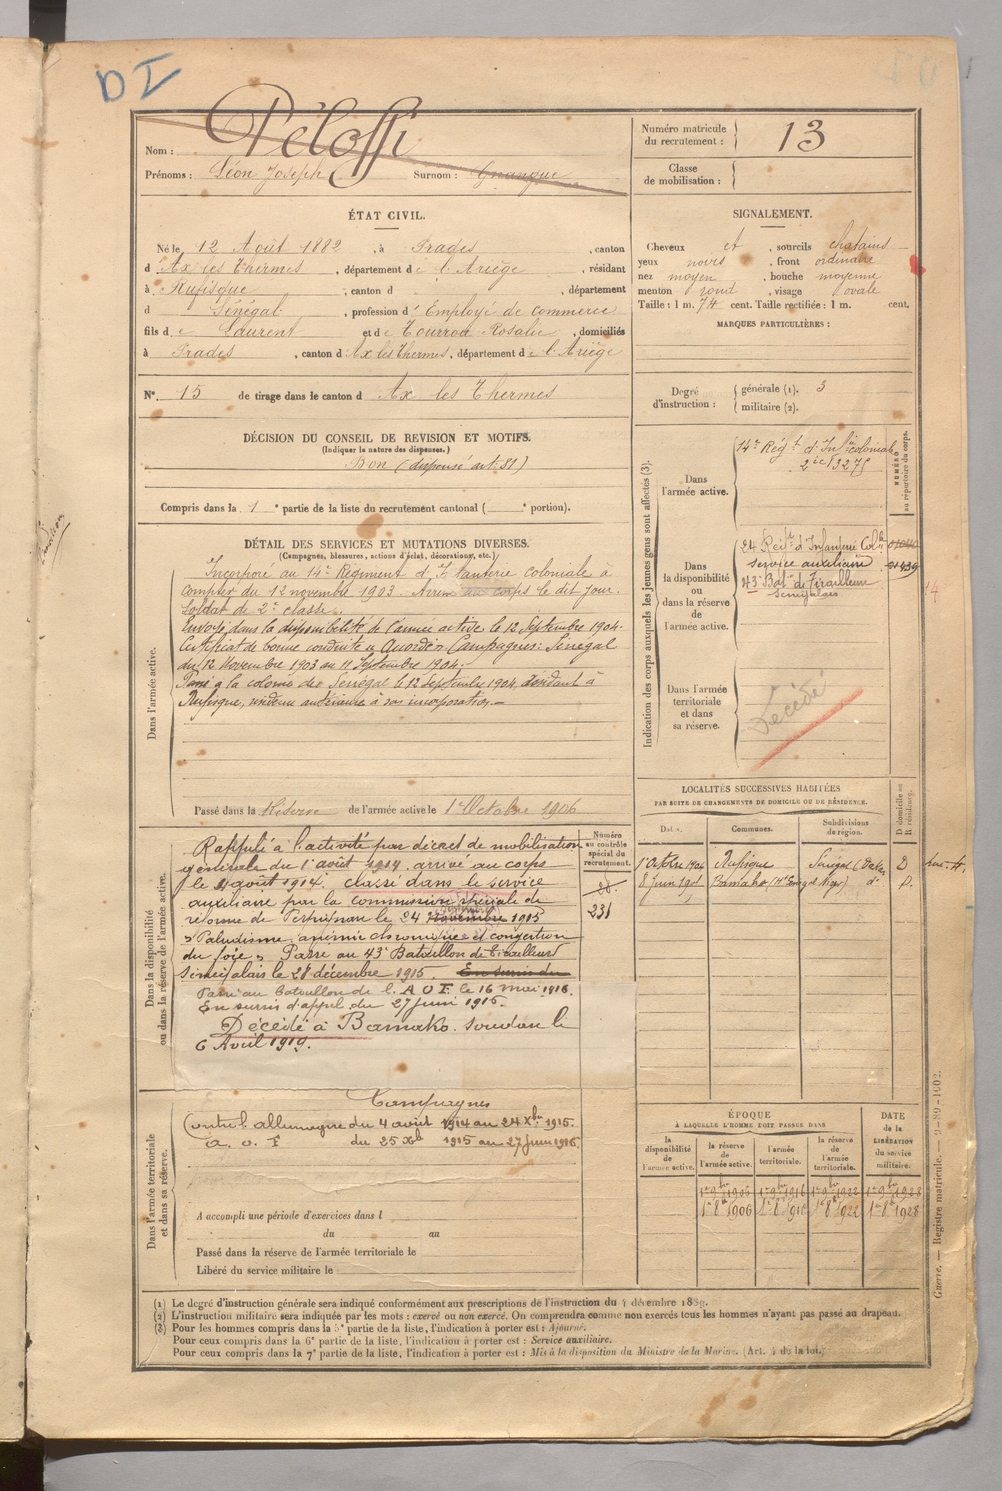 DI
Nom : Péloffi
Prénoms : Léon Joseph Surnom :
Numéro matricule
du recrutement : 13
Classe
de mobilisation :
ÉTAT CIVIL.
Né le 12 Août 1882, à Prades, canton
d'Ax les Thermes, département de l'Ariège, résidant
à Rufisque, canton d , département
d Sénégal, profession d'Employé de commerce
fils de Laurent et de Tourrou Rosalie, domiciliés
à Prades, canton d'Ax les Thermes, département de l'Ariège
N° 15 de tirage dans le canton d Ax les Thermes
SIGNALEMENT.
Cheveux et , sourcils chatains
yeux noirs , front ordinaire
nez moyen , bouche moyenne
menton rond , visage ovale
Taille : 1 m. 74 cent. Taille rectifiée : 1 m. cent.
MARQUES PARTICULIÈRES :
Degré
d'instruction :
générale (1). 3
militaire (2).
DÉCISION DU CONSEIL DE REVISION ET MOTIFS.
(Indiquer la nature des dispenses.)
Bon (dispensé art. 81)
Compris dans la 1e partie de la liste du recrutement cantonal ( e portion).
DÉTAIL DES SERVICES ET MUTATIONS DIVERSES.
(Campagnes, blessures, actions d'éclat, décorations, etc.)
Dans l'armée active.
Incorporé au 14e Régiment d'Infanterie coloniale à
compter du 12 novembre 1903. Arrivé au corps le dit jour.
Soldat de 2e classe.
Envoyé dans la disponibilité de l'armée active le 12 Septembre 1904.
Certificat de bonne conduite "Accordé". Campagnes : Sénégal
du 12 Novembre 1903 au 11 Septembre 1904.
à la colonie du Sénégal le 12 septembre 1904, résidant à
Rufisque, résidence antérieure à son incorporation.
Passé dans la Réserve de l'armée active le 1er Octobre 1906
Indication des corps auxquels les jeunes gens sont affectés (3).
NUMÉRO
au répertoire du corps.
Dans
l'armée active.
14e Régt d'Infie coloniale
2e Cie 3275
Dans
la disponibilité
ou
dans la réserve
de
l'armée active.
24 Régt d'Infanterie Colle
Service auxiliaire
43e Bat. de Tirailleurs
Sénégalais
Dans l'armée
territoriale
et dans
sa réserve.
Décédé
Dans la disponibilité
ou dans la réserve de l'armée active.
Numéro
au contrôle
spécial du
recrutement.
231
Rappelé à l'activité par décret de mobilisation
générale du 1er août 1914. arrivé au corps
le 4 août 1914. classé dans le service
auxiliaire par la commission spéciale de
réforme de Perpignan le 24 novembre 1915
"Paludisme, anémie chronique et congestion
du foie". Passé au 43e Bataillon de Tirailleurs
Sénégalais le 28 décembre 1915. En sursis du
Passé au Bataillon de l'A O F. le 16 mai 1916.
En sursis d'appel du 27 juin 1916.
Décédé à Bamako. Soudan le
6 Avril 1919.
LOCALITÉS SUCCESSIVES HABITÉES
PAR SUITE DE CHANGEMENTS DE DOMICILE OU DE RÉSIDENCE.
Dates. Communes. Subdivisions
de région. D domicile ou
R résidence.
1er Octbre 1904 Rufisque Sénégal (Dakar) D
8 juin 1908 Bamako (Ht Sénégal Niger) d° R
Dans l'armée territoriale
et dans sa réserve.
Campagnes
Contre l'allemagne du 4 août 1914 au 24 Xbre 1915.
A. O. F du 25 Xbre 1915 au 27 juin 1916
A accompli une période d'exercices dans l
du au
Passé dans la réserve de l'armée territoriale le
Libéré du service militaire le
ÉPOQUE
À LAQUELLE L'HOMME DOIT PASSER DANS
DATE
de la
LIBÉRATION
du service
militaire.
la
disponibilité
de
l'armée active.
la réserve
de
l'armée active.
l'armée
territoriale.
la réserve
de
l'armée
territoriale.
1er 9bre 1906 1er 9bre 1916 1er 9bre 1922 1er 9bre 1928
1er 8bre 1906 1er 8bre 1916 1er 8bre 1922 1er 8bre 1928
(1) Le degré d'instruction générale sera indiqué conformément aux prescriptions de l'instruction du 4 décembre 1889.
(2) L'instruction militaire sera indiquée par les mots : exercé ou non exercé. On comprendra comme non exercés tous les hommes n'ayant pas passé au drapeau.
(3) Pour les hommes compris dans la 5e partie de la liste, l'indication à porter est : Ajourné.
Pour ceux compris dans la 6e partie de la liste, l'indication à porter est : Service auxiliaire.
Pour ceux compris dans la 7e partie de la liste, l'indication à porter est : Mis à la disposition du Ministre de la Marine. (Art. 4 de la loi.)
Guerre. — Registre matricule. —